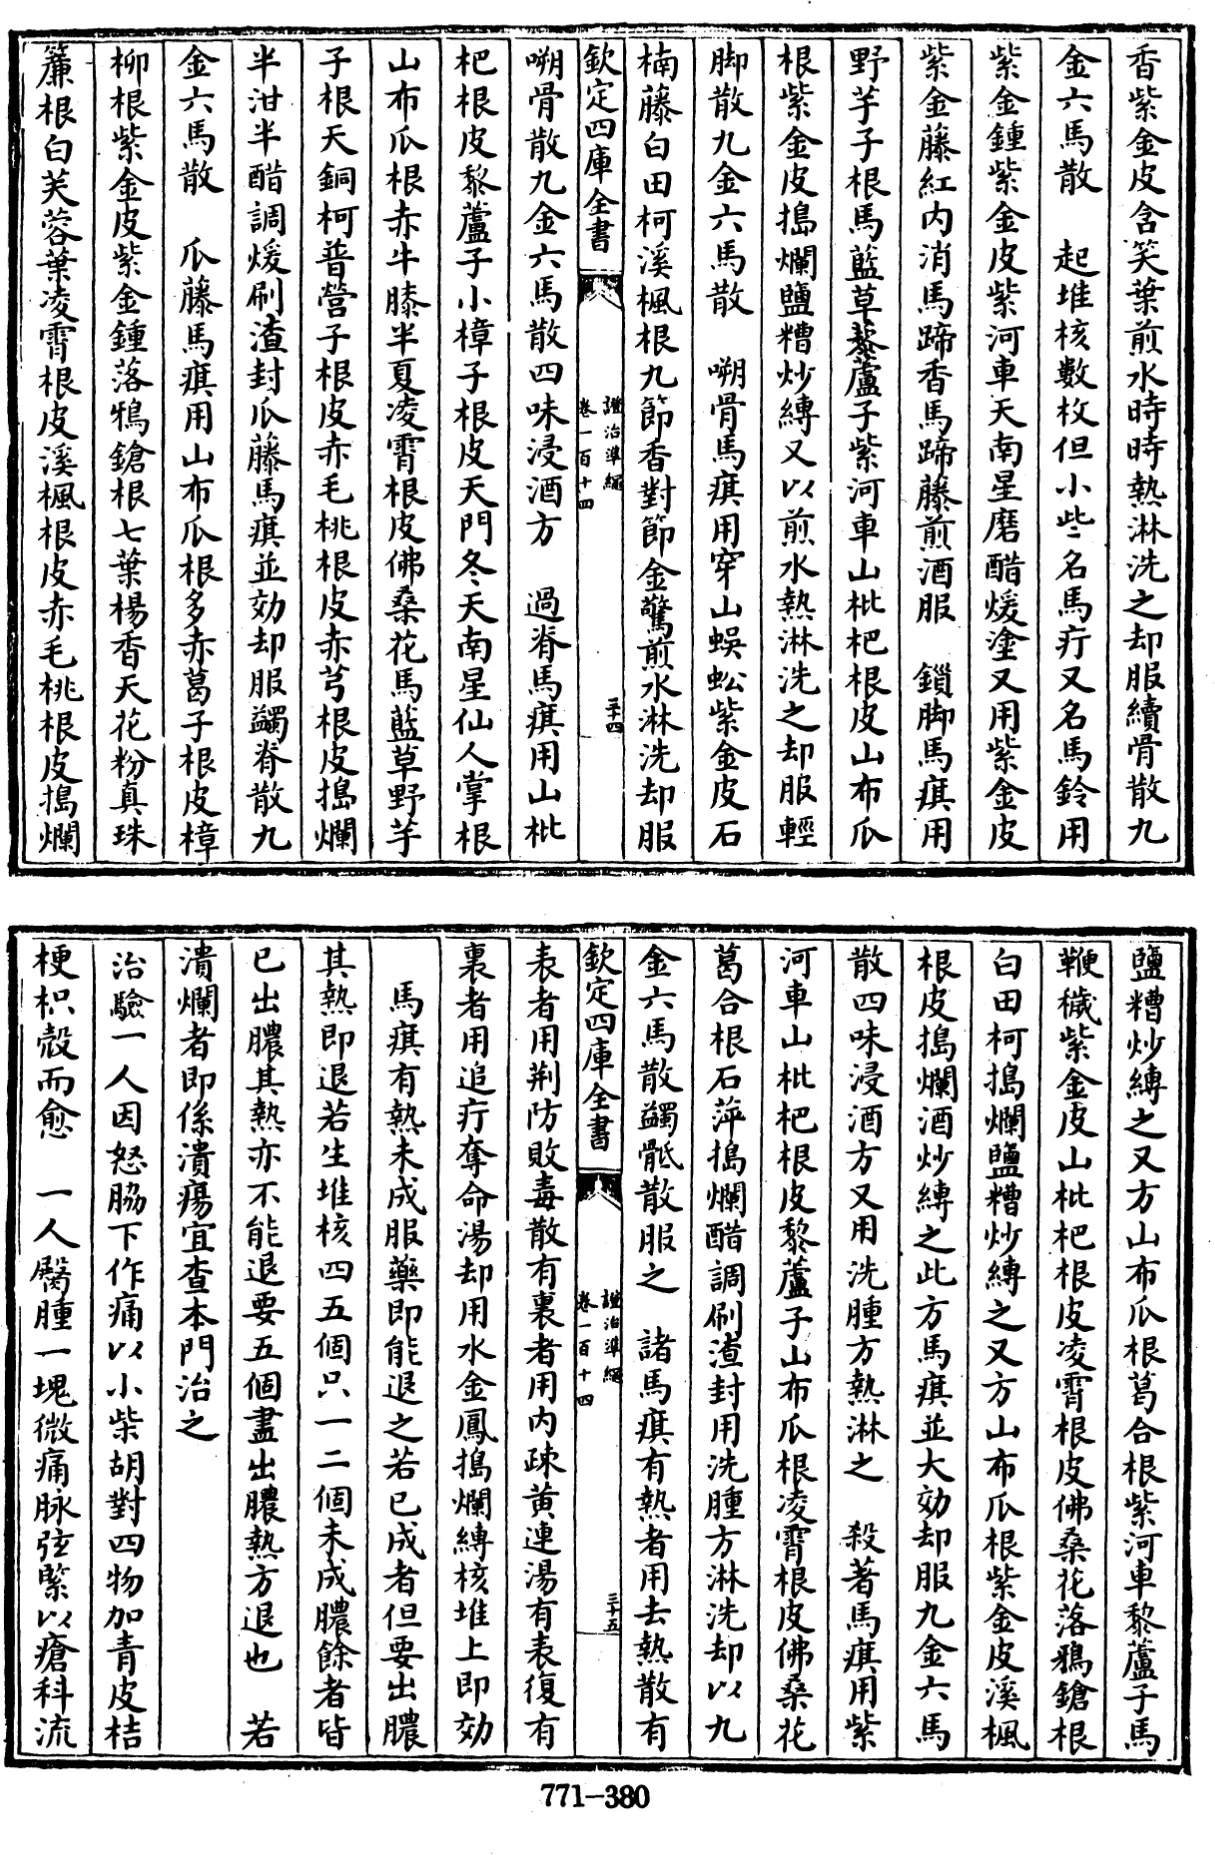 香紫金皮含笑葉煎水時時熱淋洗之却服續骨散九
金六馬散　起堆核數枚但小些名馬疔又名馬鈴用
紫金鍾紫金皮紫河車天南星磨醋煖塗又用紫金皮
紫金藤紅内消馬蹄香馬蹄藤煎酒服　鎖脚馬㾾用
野芋子根馬藍草藜蘆子紫河車山枇杷根皮山布瓜
根紫金皮搗爛鹽糟炒縛又以煎水熱淋洗之却服輕
脚散九金六馬散　嗍骨馬㾾用穿山蜈蚣紫金皮石
楠藤白田柯溪楓根九節香對節金鷔煎水淋洗却服
欽定四庫全書
證治準繩
卷一百十四
三十四
嗍骨散九金六馬散四味浸酒方　過脊馬㾾用山枇
杷根皮藜蘆子小樟子根皮天門冬天南星仙人掌根
山布瓜根赤牛膝半夏凌霄根皮佛桑花馬藍草野芋
子根天銅柯普營子根皮赤毛桃根皮赤芍根皮搗爛
半泔半醋調煖刷渣封瓜藤馬㾾並効却服蠲脊散九
金六馬散　瓜藤馬㾾用山布瓜根多赤葛子根皮樟
柳根紫金皮紫金鍾落鴉鎗根七葉楊香天花粉真珠
簾根白芙蓉葉凌霄根皮溪楓根皮赤毛桃根皮搗爛
鹽糟炒縛之又方山布瓜根葛合根紫河車藜蘆子馬
鞭穢紫金皮山枇杷根皮凌霄根皮佛桑花落鴉鎗根
白田柯搗爛鹽糟炒縛之又方山布瓜根紫金皮溪楓
根皮搗爛酒炒縛之此方馬㾾並大効却服九金六馬
散四味浸酒方又用洗腫方熱淋之　殺著馬㾾用紫
河車山枇杷根皮藜蘆子山布瓜根凌霄根皮佛桑花
葛合根石萍搗爛醋調刷渣封用洗腫方淋洗却以九
金六馬散蠲骶散服之　諸馬㾾有熱者用去熱散有
欽定四庫全書
證治準繩
卷一百十四
三十五
表者用荆防敗毒散有裏者用内疎黄連湯有表復有
裏者用追疔奪命湯却用水金鳳搗爛縛核堆上即効
馬㾾有熱未成服藥即能退之若已成者但要出膿
其熱即退若生堆核四五個只一二個未成膿餘者皆
已出膿其熱亦不能退要五個盡出膿熱方退也　若
潰爛者即係潰瘍宜查本門治之
治驗一人因怒脇下作痛以小柴胡對四物加青皮桔
梗枳殼而愈　一人臋腫一塊微痛脉弦緊以瘡科流
771—380